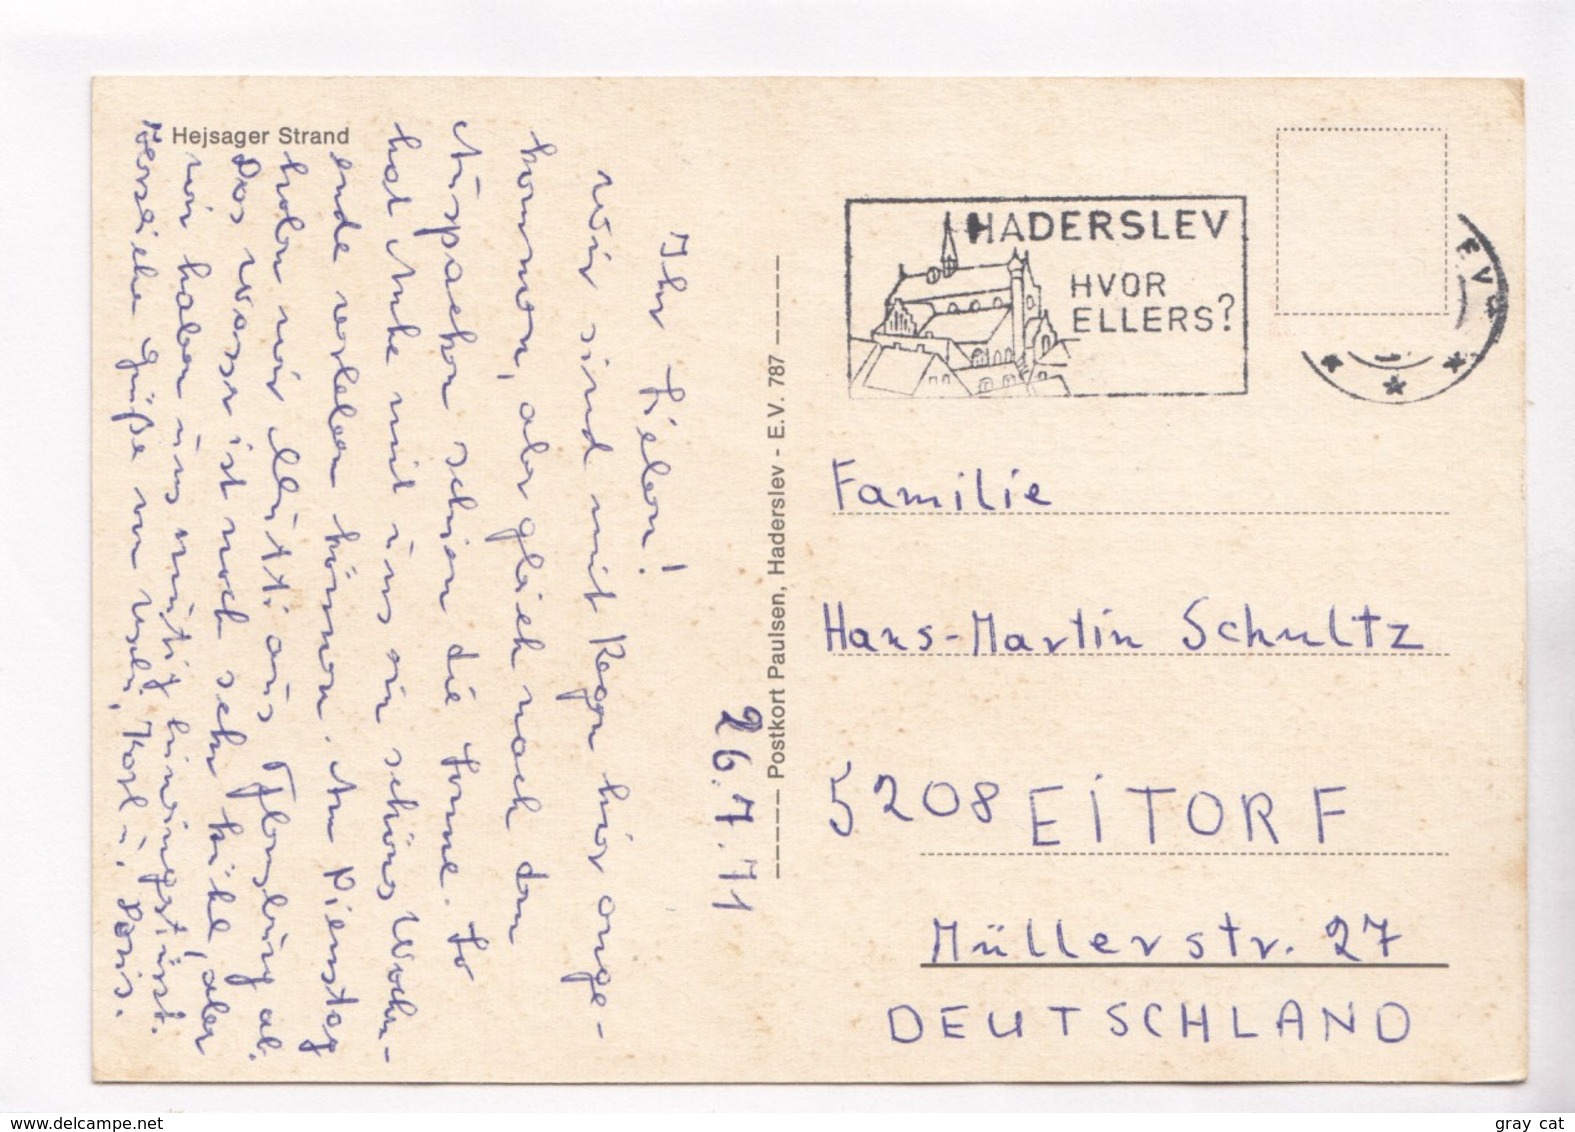 Hejsager Strand
26.7.71
Ihr Lieben!
Wir sind mit Regen hier ange-
kommen, aber gleich nach dem
Auspacken schien die Sonne. So
hat Anke mit uns ein schönes Wochen-
ende verleben können. Am Dienstag
holen wir Mutti aus Flensburg ab.
Das Wasser ist noch sehr kühl, aber
wir haben uns mutig hineingestürzt.
Herzliche Grüße von Usch, Karl u.
Postkort Paulsen, Haderslev - E.V. 787
HADERSLEV
HVOR
ELLERS?
EV
Familie
Hans-Martin Schultz
5208 EITORF
Müllerstr. 27
DEUTSCHLAND
delcampe.net
gray cat